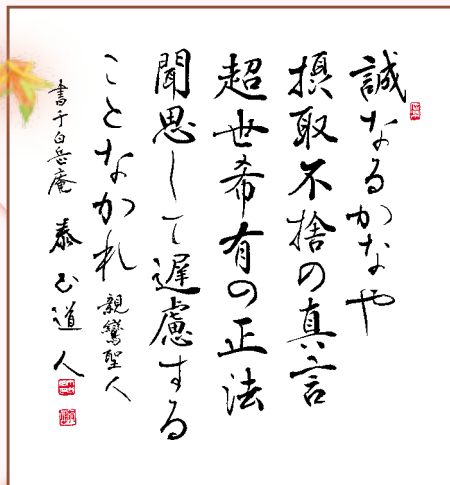 誠なるかなや
摂取不捨の真言
超世希有の正法
聞思して遅慮する
ことなかれ 親鸞聖人
書于白岳庵 泰心道人